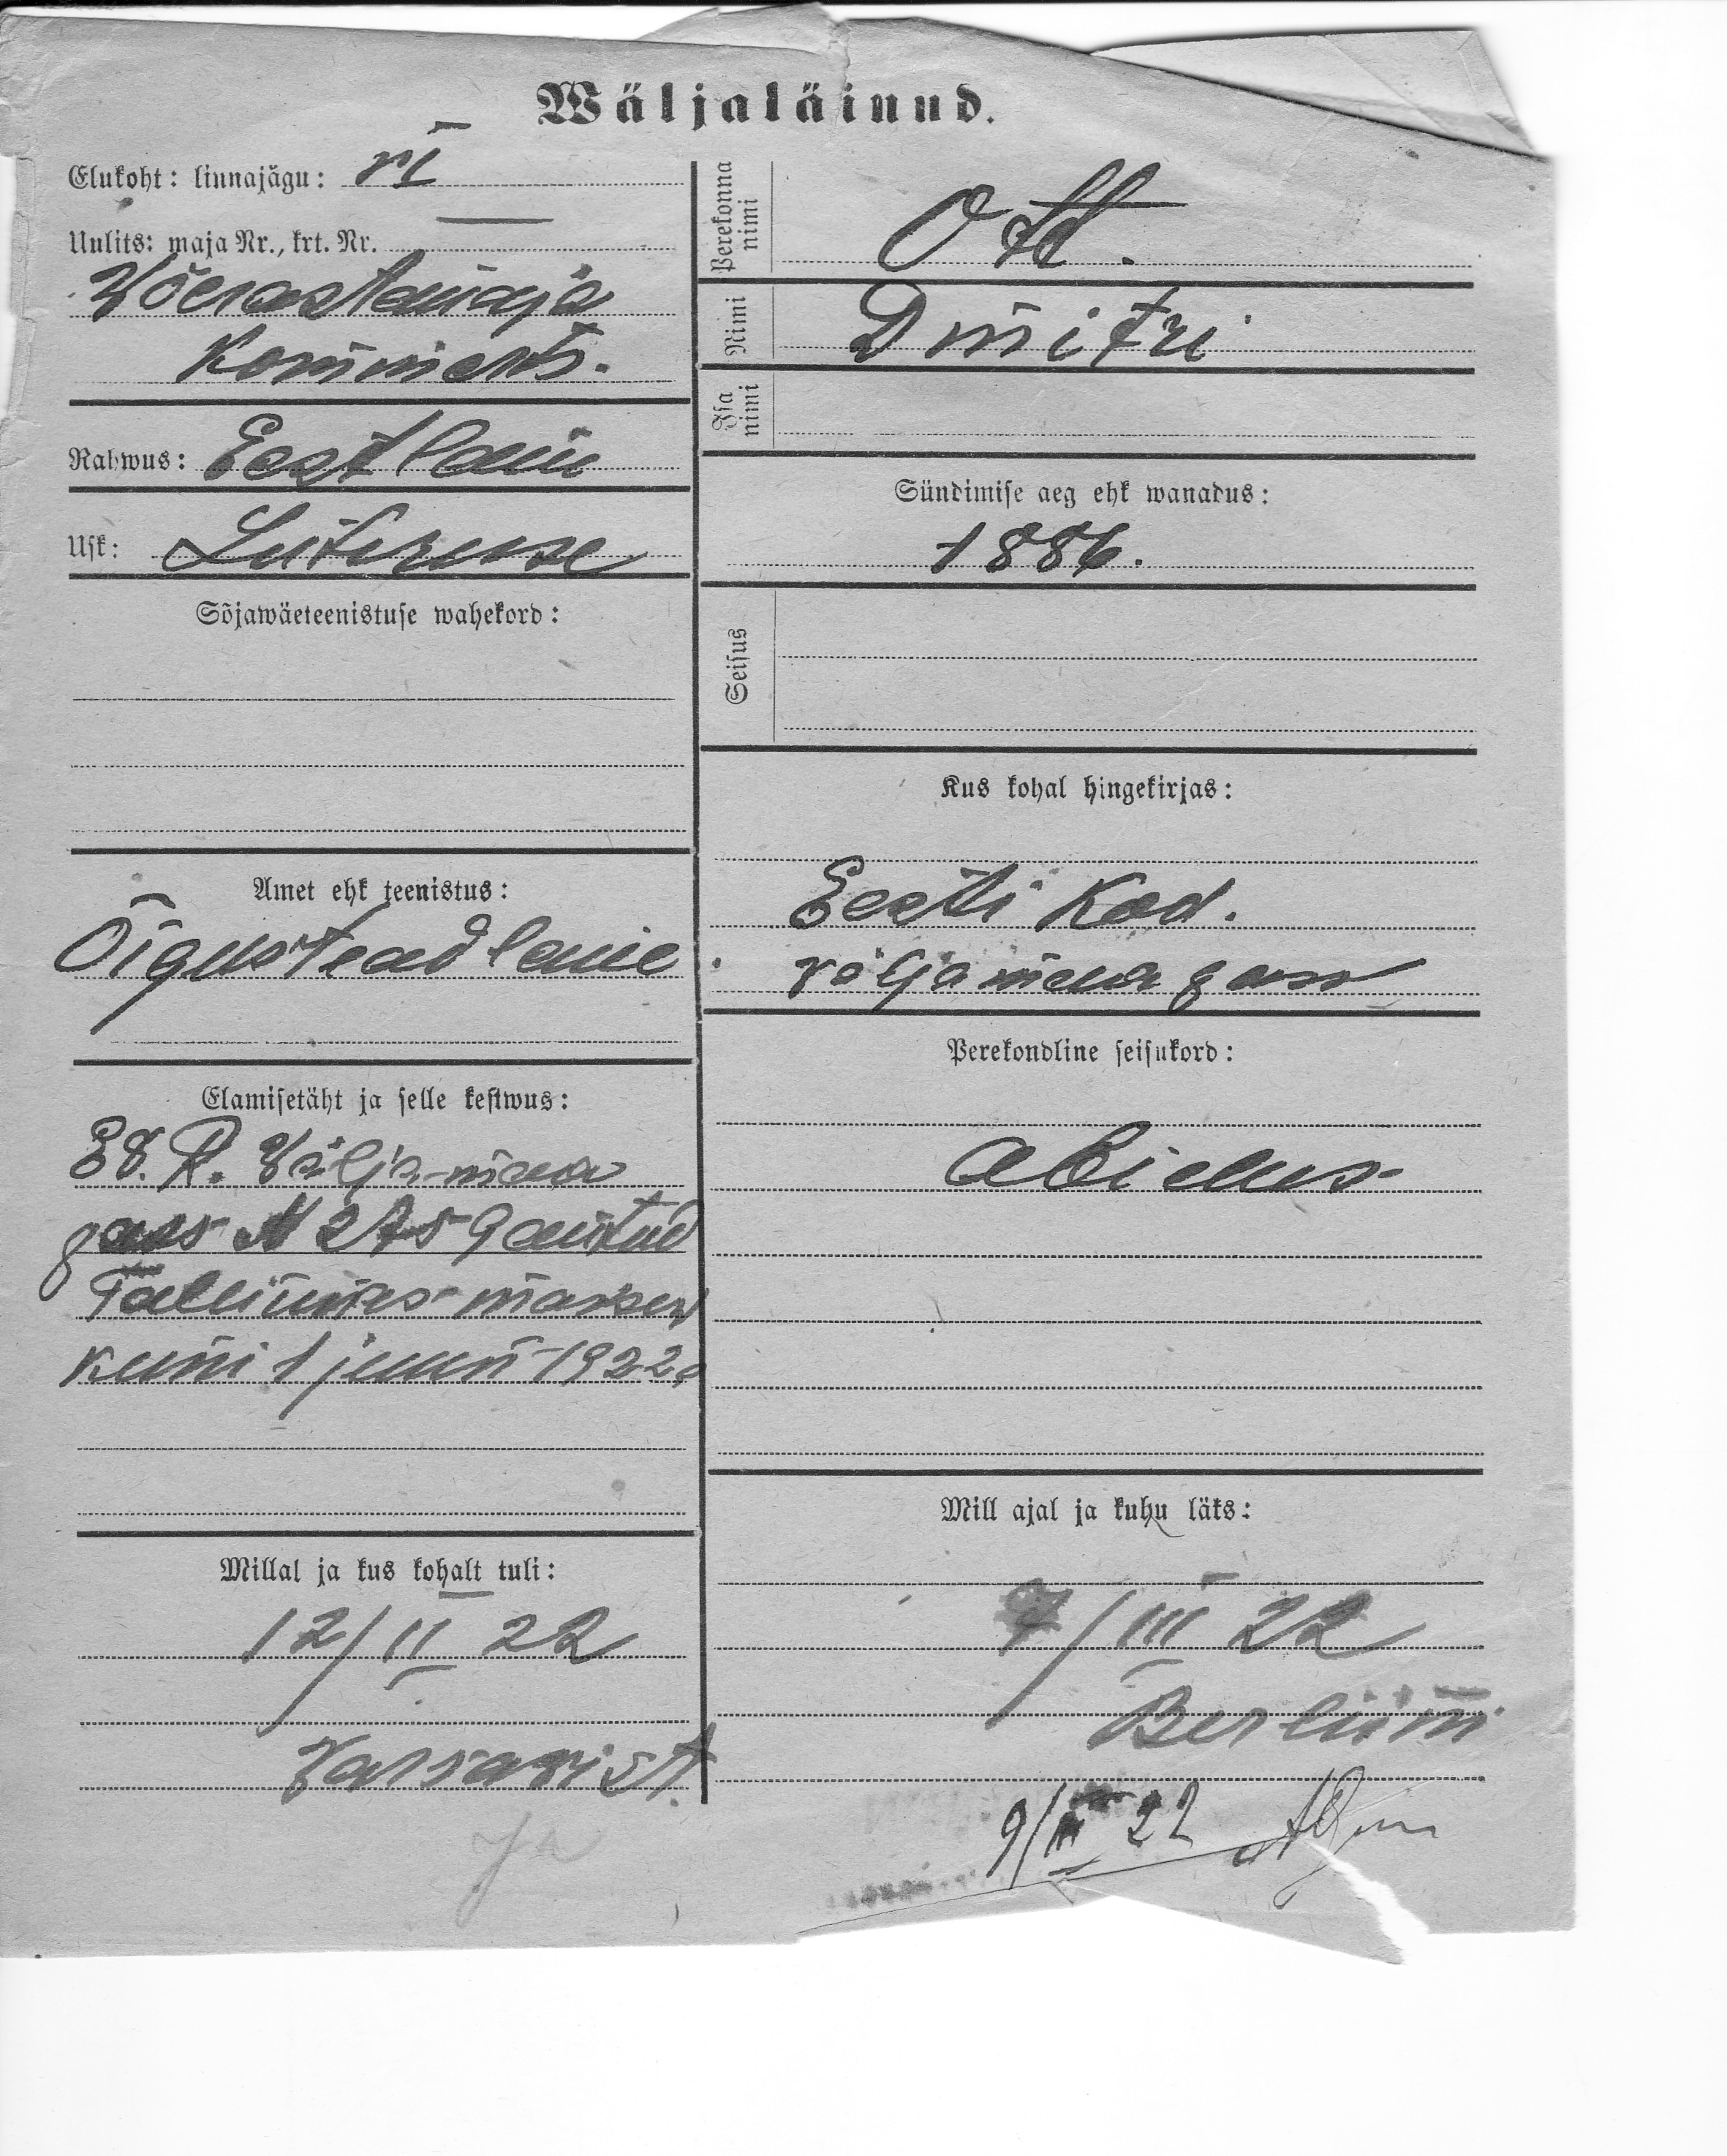 Wäljaläinud.
Elukoht: linnajägu: VI
Uulits: maja Nr., krt. Nr.
Võerastemaja
Kommerts.
Rahwus: Eestlane
Usk: Luteruse
Sõjawäeteenistuse wahekord:
Amet ehk teenistus:
Õigusteadlane
Elamisetäht ja selle kestwus:
E.V.R. Välja-maa
pass N antud
Tallinnas maksev
kuni 1 juuni 1922 a
Millal ja kus kohalt tuli:
12/II 22
Varsavist.
Ja
Perekonna nimi
Ott.
Nimi
Dmitri
Isa nimi
Sündimise aeg ehk wanadus:
1886.
Seisus
Kus kohal hingekirjas:
Eesti Kod.
väljamaa pass
Perekondline seisukord:
abielus
Mill ajal ja kuhu läks:
7/III 22
Berliini
9/III 22